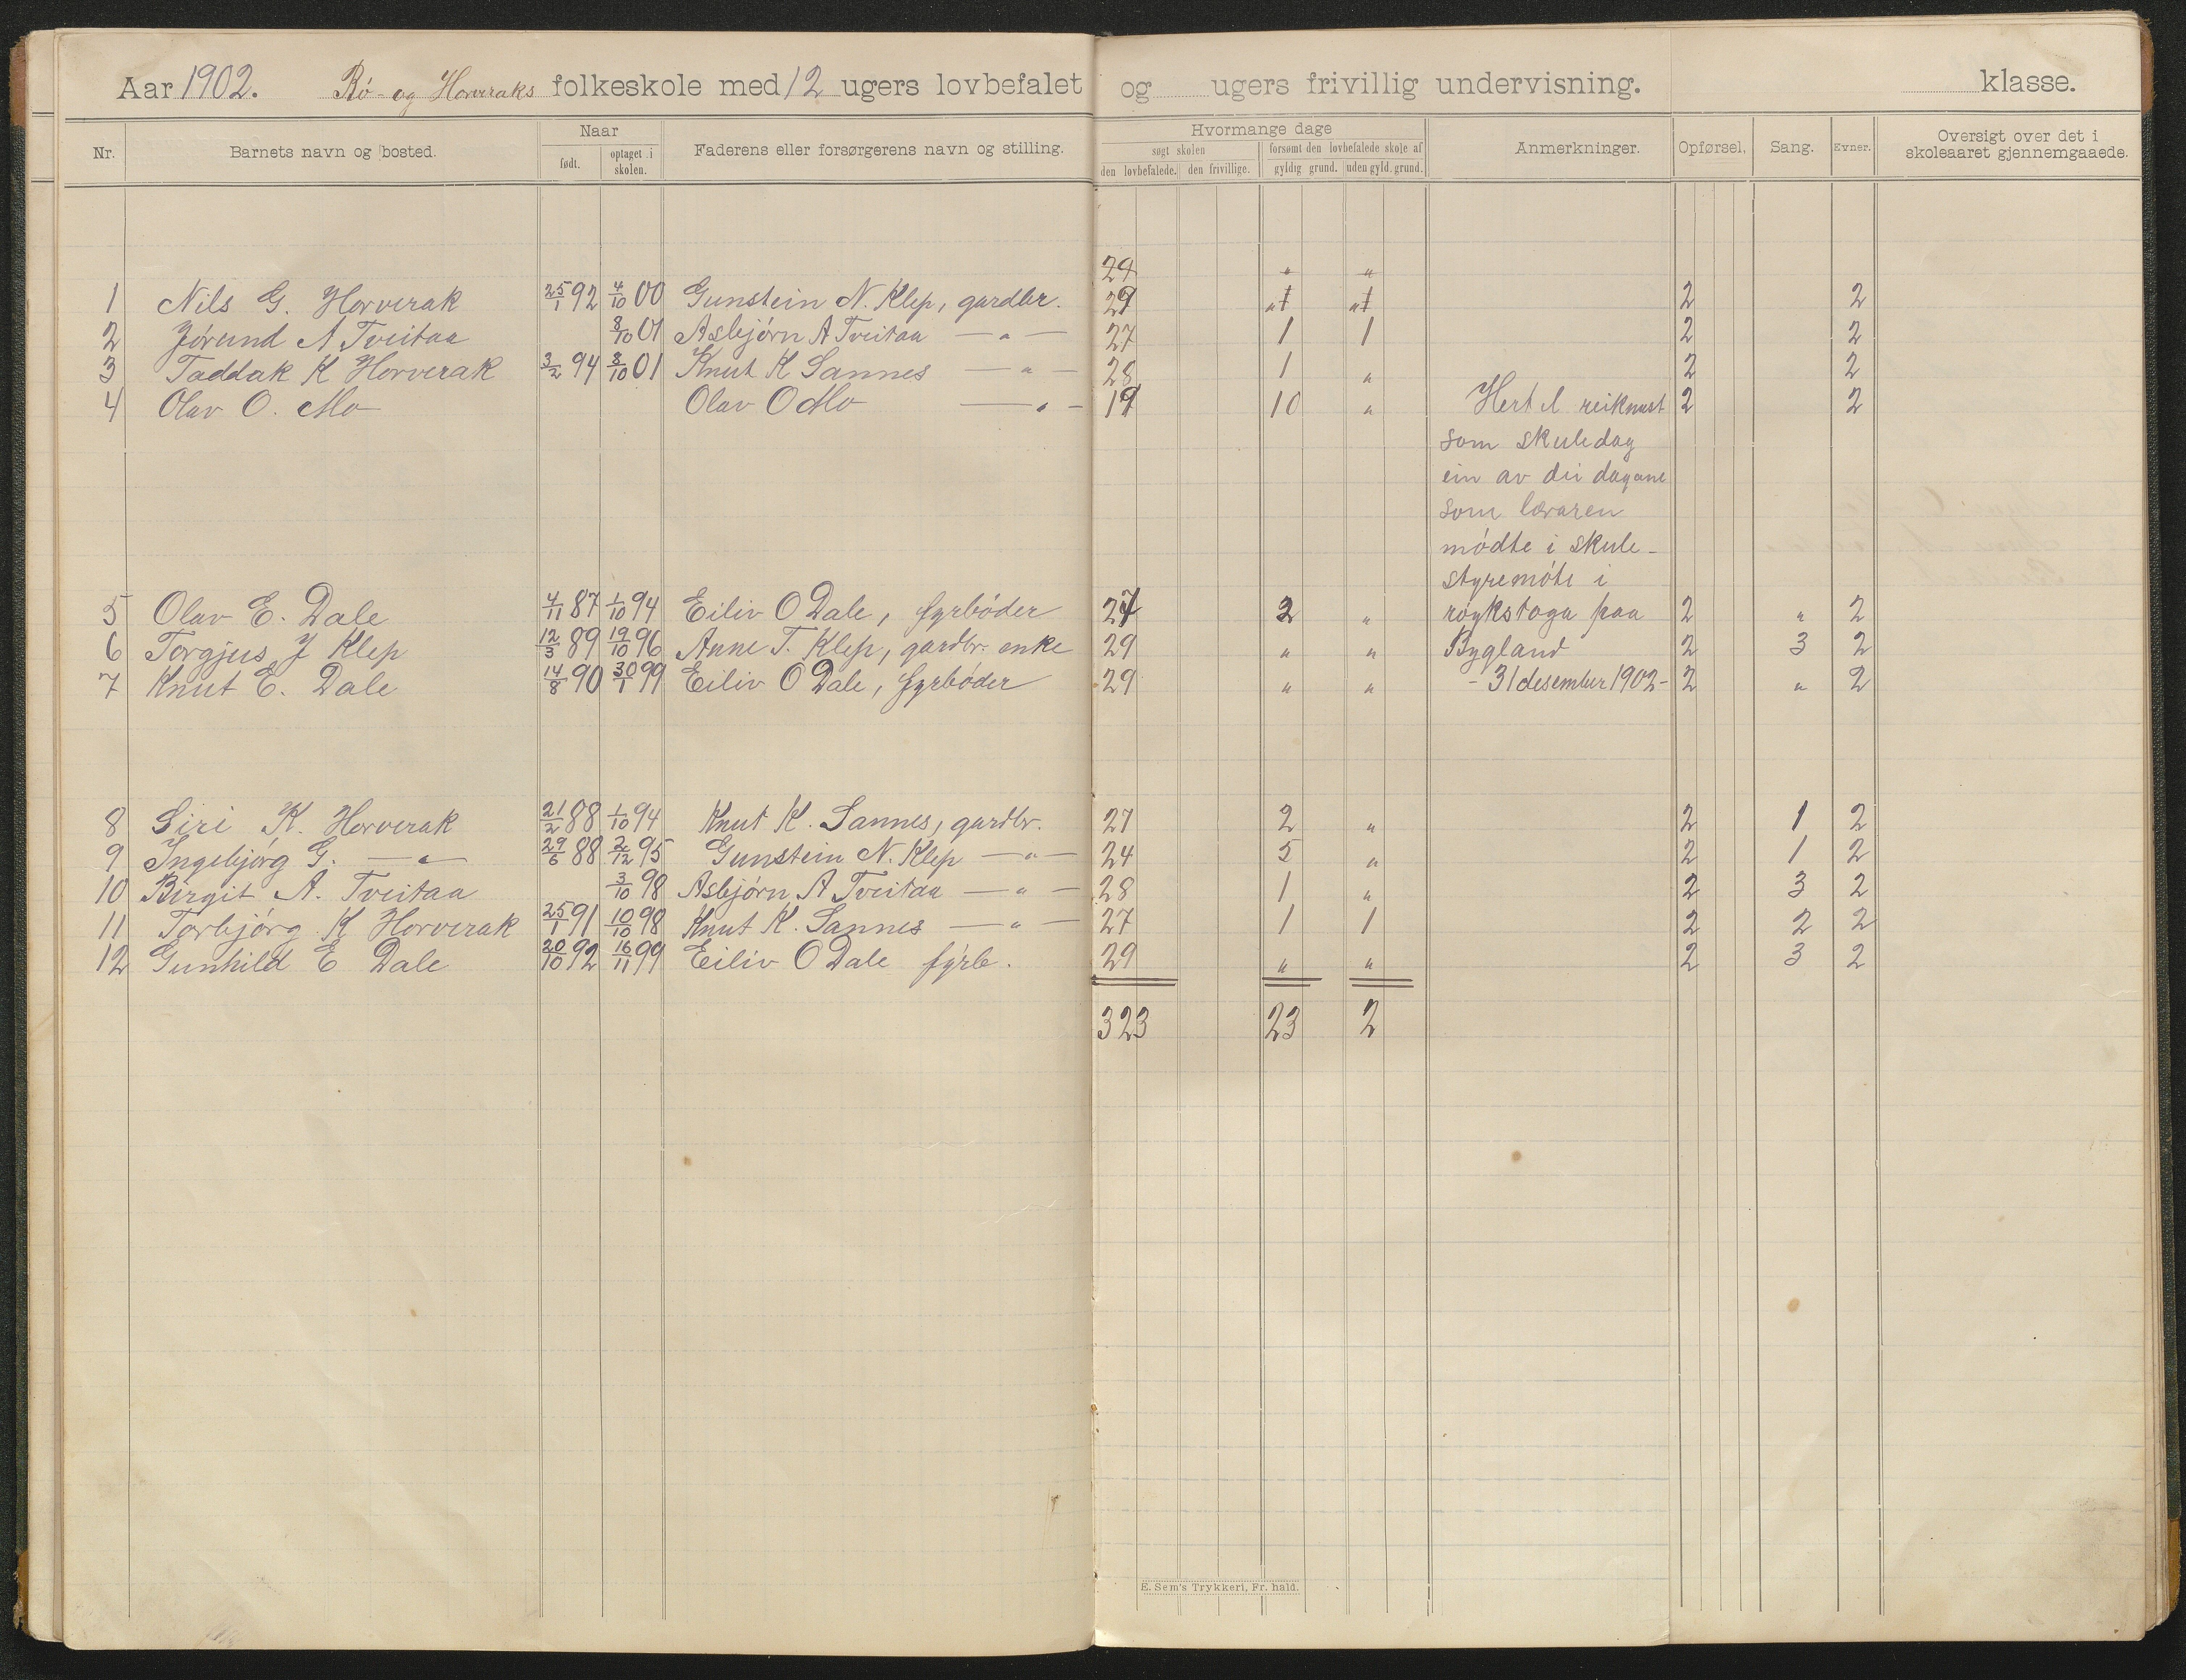 Aar 1902. Rø- og Horveraks folkeskole med 12 ugers lovbefalet og ugers frivillig undervisning. klasse.
Nr. Barnets navn og bosted. Naar født. optaget i skolen. Faderens eller forsørgerens navn og stilling. Hvormange dage søgt skolen den lovbefalede. den frivillige. forsømt den lovbefalede skole af gyldig grund. uden gyld. grund. Anmerkninger. Opførsel. Sang. Evner. Oversigt over det i skoleaaret gjennemgaaede.
29 " "
1 Nils G. Horverak 25/1 92 4/10 00 Gunstein N. Klep, gardbr. 29 " " 2 2
2 Jørund A Tveitaa 8/10 01 Asbjørn A Tveitaa — " — 27 1 1 2 2
3 Taddak K Horverak 3/2 94 8/10 01 Knut K Sannes — " — 28 1 " 2 2
4 Olav O. Mo Olav O Mo — " — 19 10 " Hert el reiknast 2 2
som skuledag
ein av dei dagane
som læraren
mødte i skule-
styremøte i
5 Olav E. Dale 4/11 87 1/10 94 Eiliv O Dale, fyrbøder 27 2 " røykstoga paa 2 " 2
6 Torgjus J Klep 12/3 89 19/10 96 Anne T. Klep, gardbr. enke 29 " " Bygland 2 3 2
7 Knut E. Dale 14/8 90 30/1 99 Eiliv O Dale, fyrbøder 29 " " - 31 desember 1902- 2 " 2
8 Siri K. Horverak 21/2 88 1/10 94 Knut K. Sannes, gardbr. 27 2 " 2 1 2
9 Ingebjørg G. — " — 29/6 88 2/12 95 Gunstein N. Klep — " — 24 5 " 2 1 2
10 Birgit A. Tveitaa 3/10 98 Asbjørn A Tveitaa — " — 28 1 " 2 3 2
11 Torbjørg K Horverak 25/1 91 10/10 98 Knut K. Sannes — " — 27 1 1 2 2 2
12 Gunhild E Dale 20/10 92 16/11 99 Eiliv O Dale fyrb. 29 " " 2 3 2
323 23 2
E. Sem's Trykkeri, Fr. hald.